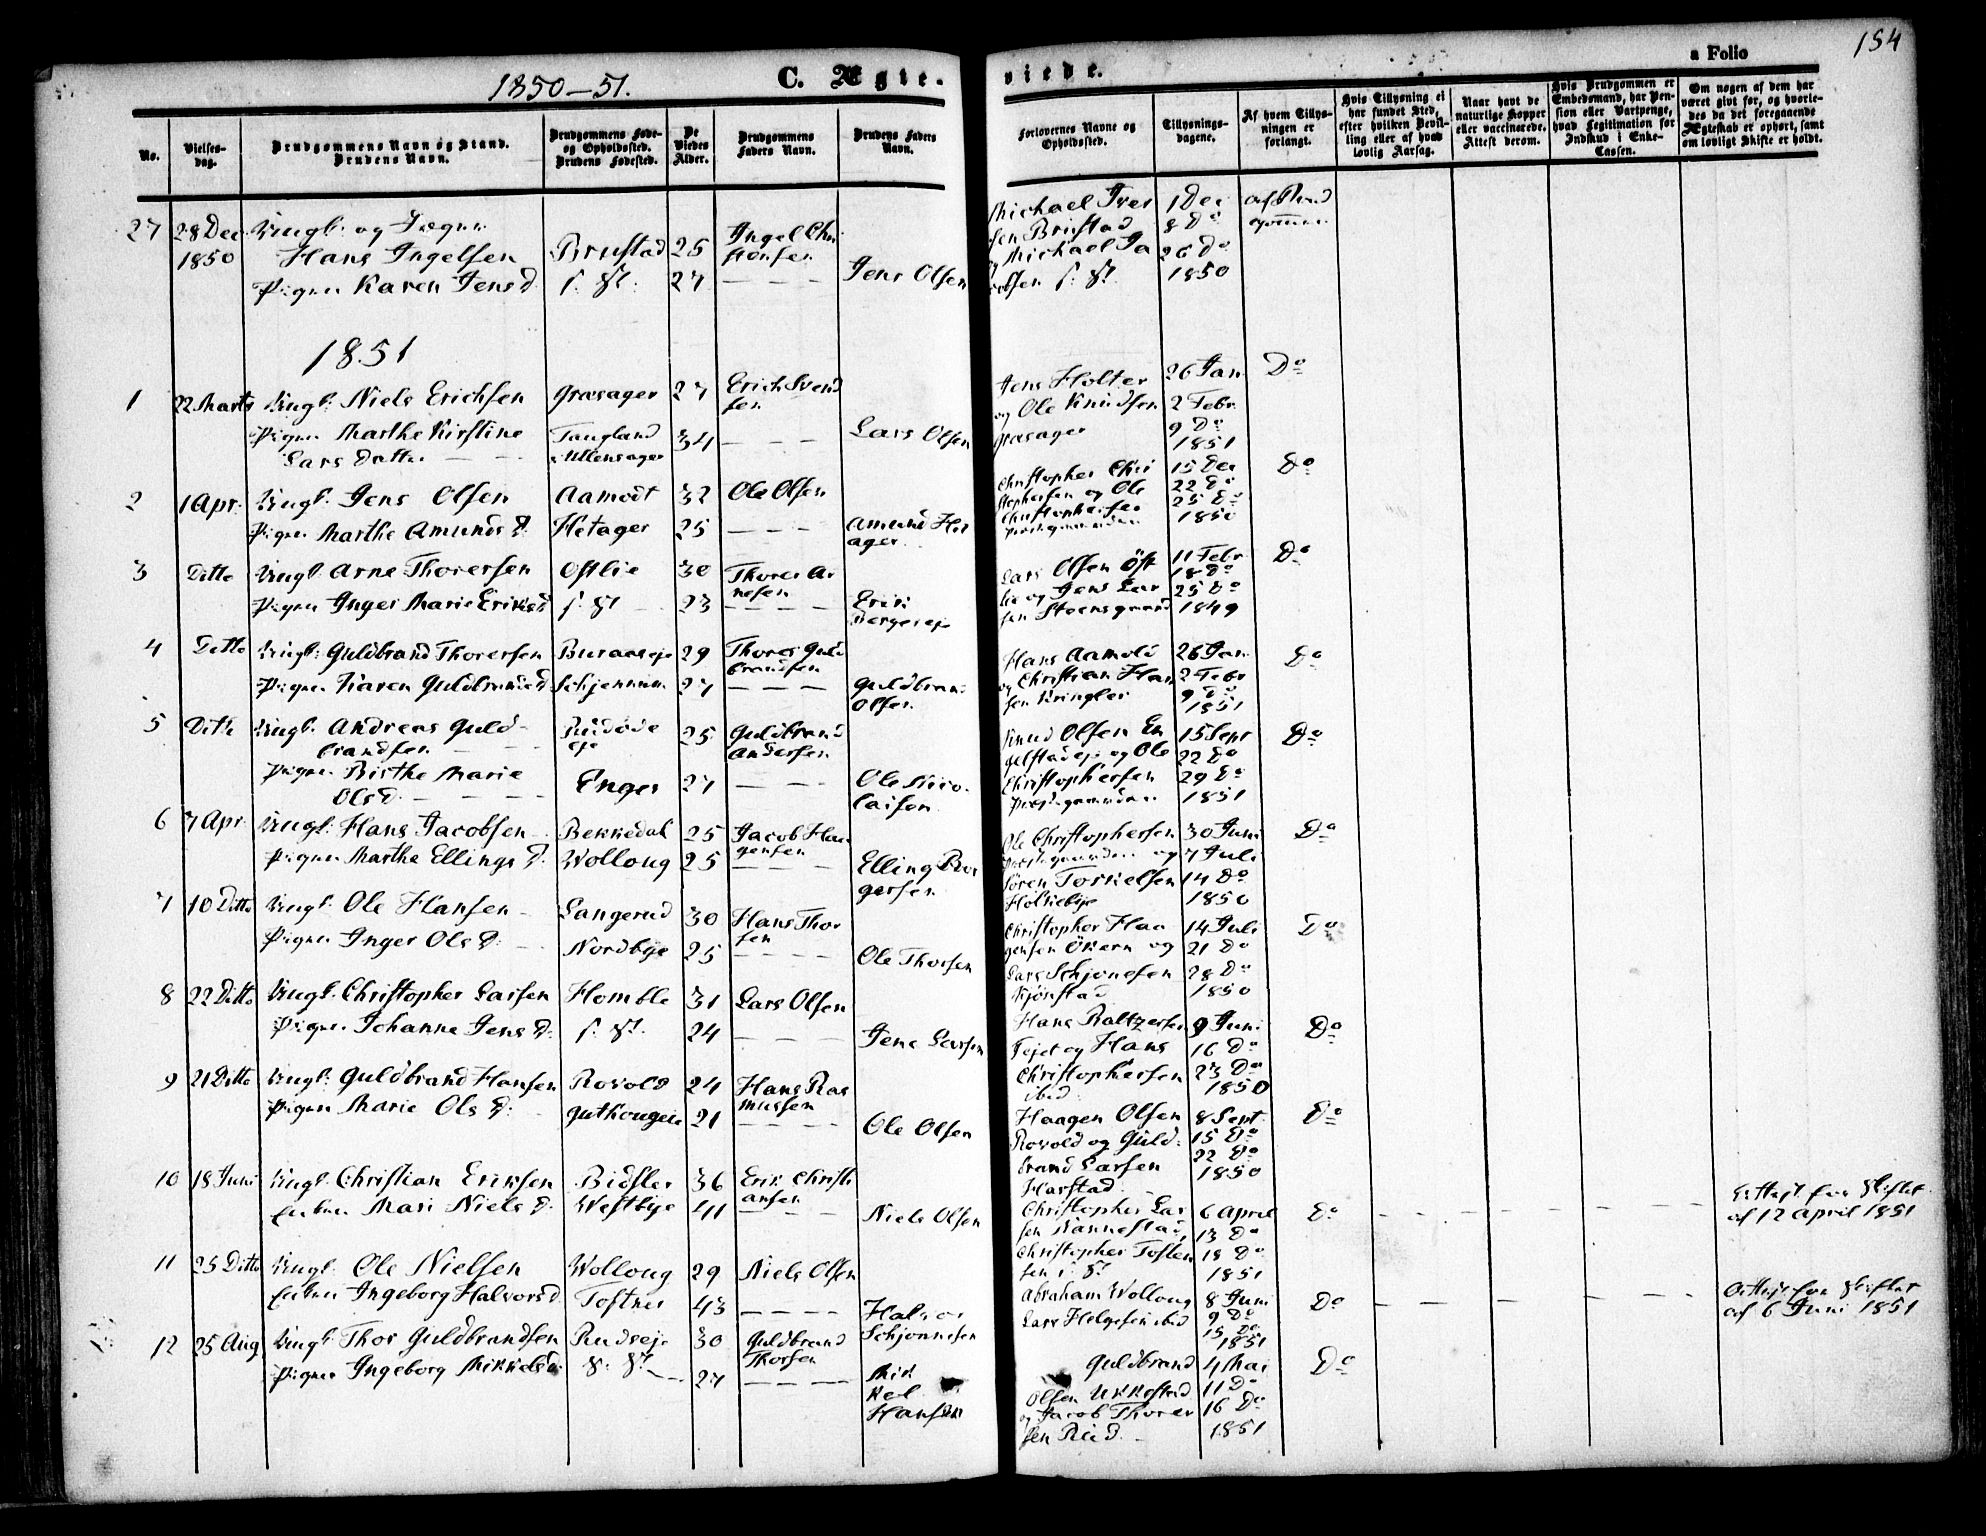 1850-51.
C. Ægte-
viede.
a Folio
154
No.
Vielses-
dag.
Brudgommens Navn og Stand.
Brudens Navn.
Brudgommens Føde-
og Opholdssted.
Brudens Fødested.
De
Viedes
Alder.
Brudgommens
Faders Navn.
Brudens Faders
Navn.
Forlovernes Navne og
Opholdssted.
Tillysnings-
dagene.
Af hvem Tillys-
ningen er
forlangt.
Hvis Tillysning ei
har fundet Sted,
efter hvilken Bevil-
ling eller af hvad
lovlig Aarsag.
Naar havt de
naturlige Kopper
eller vaccinerede.
Attest derom.
Hvis Brudgommen er
Embedsmand, har Pen-
sion eller Vartpenge,
hvad Legitimation for
Indskud i Enke-
Cassen.
Om nogen af dem har
været givt før, og hvorle-
des da det foregaaende
Ægteskab er ophørt, samt
om lovligt Skifte er holdt.
27 28 Dec 1850 Ungk: og Jæger
Hans Ingelsen Brustad 25 Ingel Chri
stensen
Pigen Karen Jensd. s. St. 27 — — — Jens Olsen
Michael Iver
sen Brustad
og Michael Ja
cobsen s. St.
1 Dec
8 Do
26 Do
1850
af Brud
gommen
1851
1 22 Marts Ungk. Niels Erichsen Græsager 27 Erich Svend
sen
Pigen Marthe Kirstine
Lars Datter — —
Taugland
i Ullensager 34 — — — Lars Olsen
Jens Holter
og Ole Knudsen
Græsager
26 Jan
2 Febr
9 Do
1851
Do
2 1 Apr. Ungk. Jens Olsen Aamodt 32 Ole Olsen
Pigen Marthe Amunds D. Hetager 25 — — — Amund Het
ager
Christopher Chri
stophersen og Ole
Christophersen
15 Dec
22 Do
25 Do
1850
Do
3 Ditto Ungk. Arne Thorersen Ostlie 30 Thorer Ar
nesen
Pigen Inger Marie Eriksd s. St — 23 — — — Erik
Bergereje
Lars Olsen Öst
lie og Jens Lar
sen Steensgaard
11 Febr
18 Do
25 Do
1849
Do
4 Ditto Ungk: Guldbrand Thorersen Buraaseje 29 Thorer Guld
brandsen
Pigen Karen Guldbrandsd 27 — — — Guldbrand
Olsen
Hans Aamold
og Christian Han
sen Kringler
26 Jan
2 Febr
9 Do
1851
Do
5 Ditto Ungk. Andreas Guld-
brandsen — —
eje 25 Guldbrand
Andersen
Pigen Birthe Marie
Olsd. — — —
Enger 27 — — — Ole Nico-
laisen
Knud Olsen En
gelstadeje og Ole
Christophersen
15 Sept
22 Do
29 Do
1851
Do
6 7 Apr Ungk. Hans Jacobsen Bekkedal 25 Jacob Haa
gensen
Pigen Marthe Ellings D. Wollong 25 — — Elling Bor
gersen
Ole Christophersen
og
Sören Torkelsen
Holkebye
30 Juni
7 Juli
14 Do
1850
Do
7 10 Ditto Ungk. Ole Hansen Langerud 30 Hans Thor
sen
Pigen Inger Ols D: — Nordbye 25 — — — Ole Thorsen
Christopher Haa
gensen Ökern og
Lars Schjonesen
Kjönstad
14 Juli
21 Do
28 Do
1850
Do
8 22 Ditto Ungk. Christopher Larsen Homble 31 Lars Olsen
Pigen Johanne Jens D. s. St. 24 — — — Jens Larsen
Hans Baltzersen
Fejet og Hans
Christophersen
ibid.
9 Juni
16 Do
23 Do
1850
Do
9 21 Ditto Ungk. Guldbrand Hansen Rovold 24 Hans Ras
mussen
Pigen Marie Ols D: 21 — — — Ole Olsen
Haagen Olsen
Rovold og Guld-
brand Larsen
Harstad.
8 Sept.
15 Do
22 Do
1850
Do
10 18 Juni Ungk. Christian Eriksen Bidsler 36 Erik Christi
ansen
Enken Mari Niels D. Westbye 41 — — — Niels Olsen
Christopher Lar
sen Kannestad,
Christopher Tosten
sen s. St
6 April
13 Do
18 Do
1851
Do — — — — —
Attest fra Skiftet
af 12 April 1851
11 25 Ditto Ungk. Ole Nielsen Wollong 29 Niels Olsen
Enken Ingeborg Halvorsd Toftner 43 — — — Halvor
Schjonnesen
Abraham Wollong
Lars Helgesen ibid
8 Juni
9 Do
15 Do
1851
Do — — — — —
Attest fra Skiftet
af 6 Juni 1851
12 25 Aug Ungk. Thor Guldbrandsen Rudseje 30 Guldbrand
Thorsen
Pigen Ingeborg Mikkelsd S. St. — — 27 — — — Mik
kel
Hansen
Guldbrand
Olsen Ukkestad
og Jacob Thorer
sen Rud. —
4 Mai
11 Do
16 Do
1851
Do